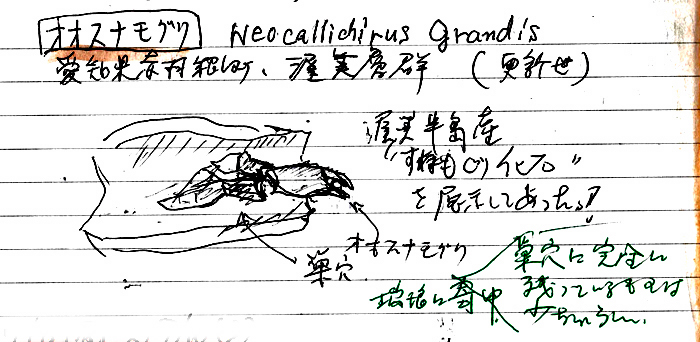 オオスナモグリ Neocallichirus Grandis
愛知県赤羽根町、渥美層群 (更新世)
渥美半島産
"すなもぐり化石"
を展示してあった!!
オオスナモグリ
巣穴
巣穴に完全に
残っているものは
少ないらしい。